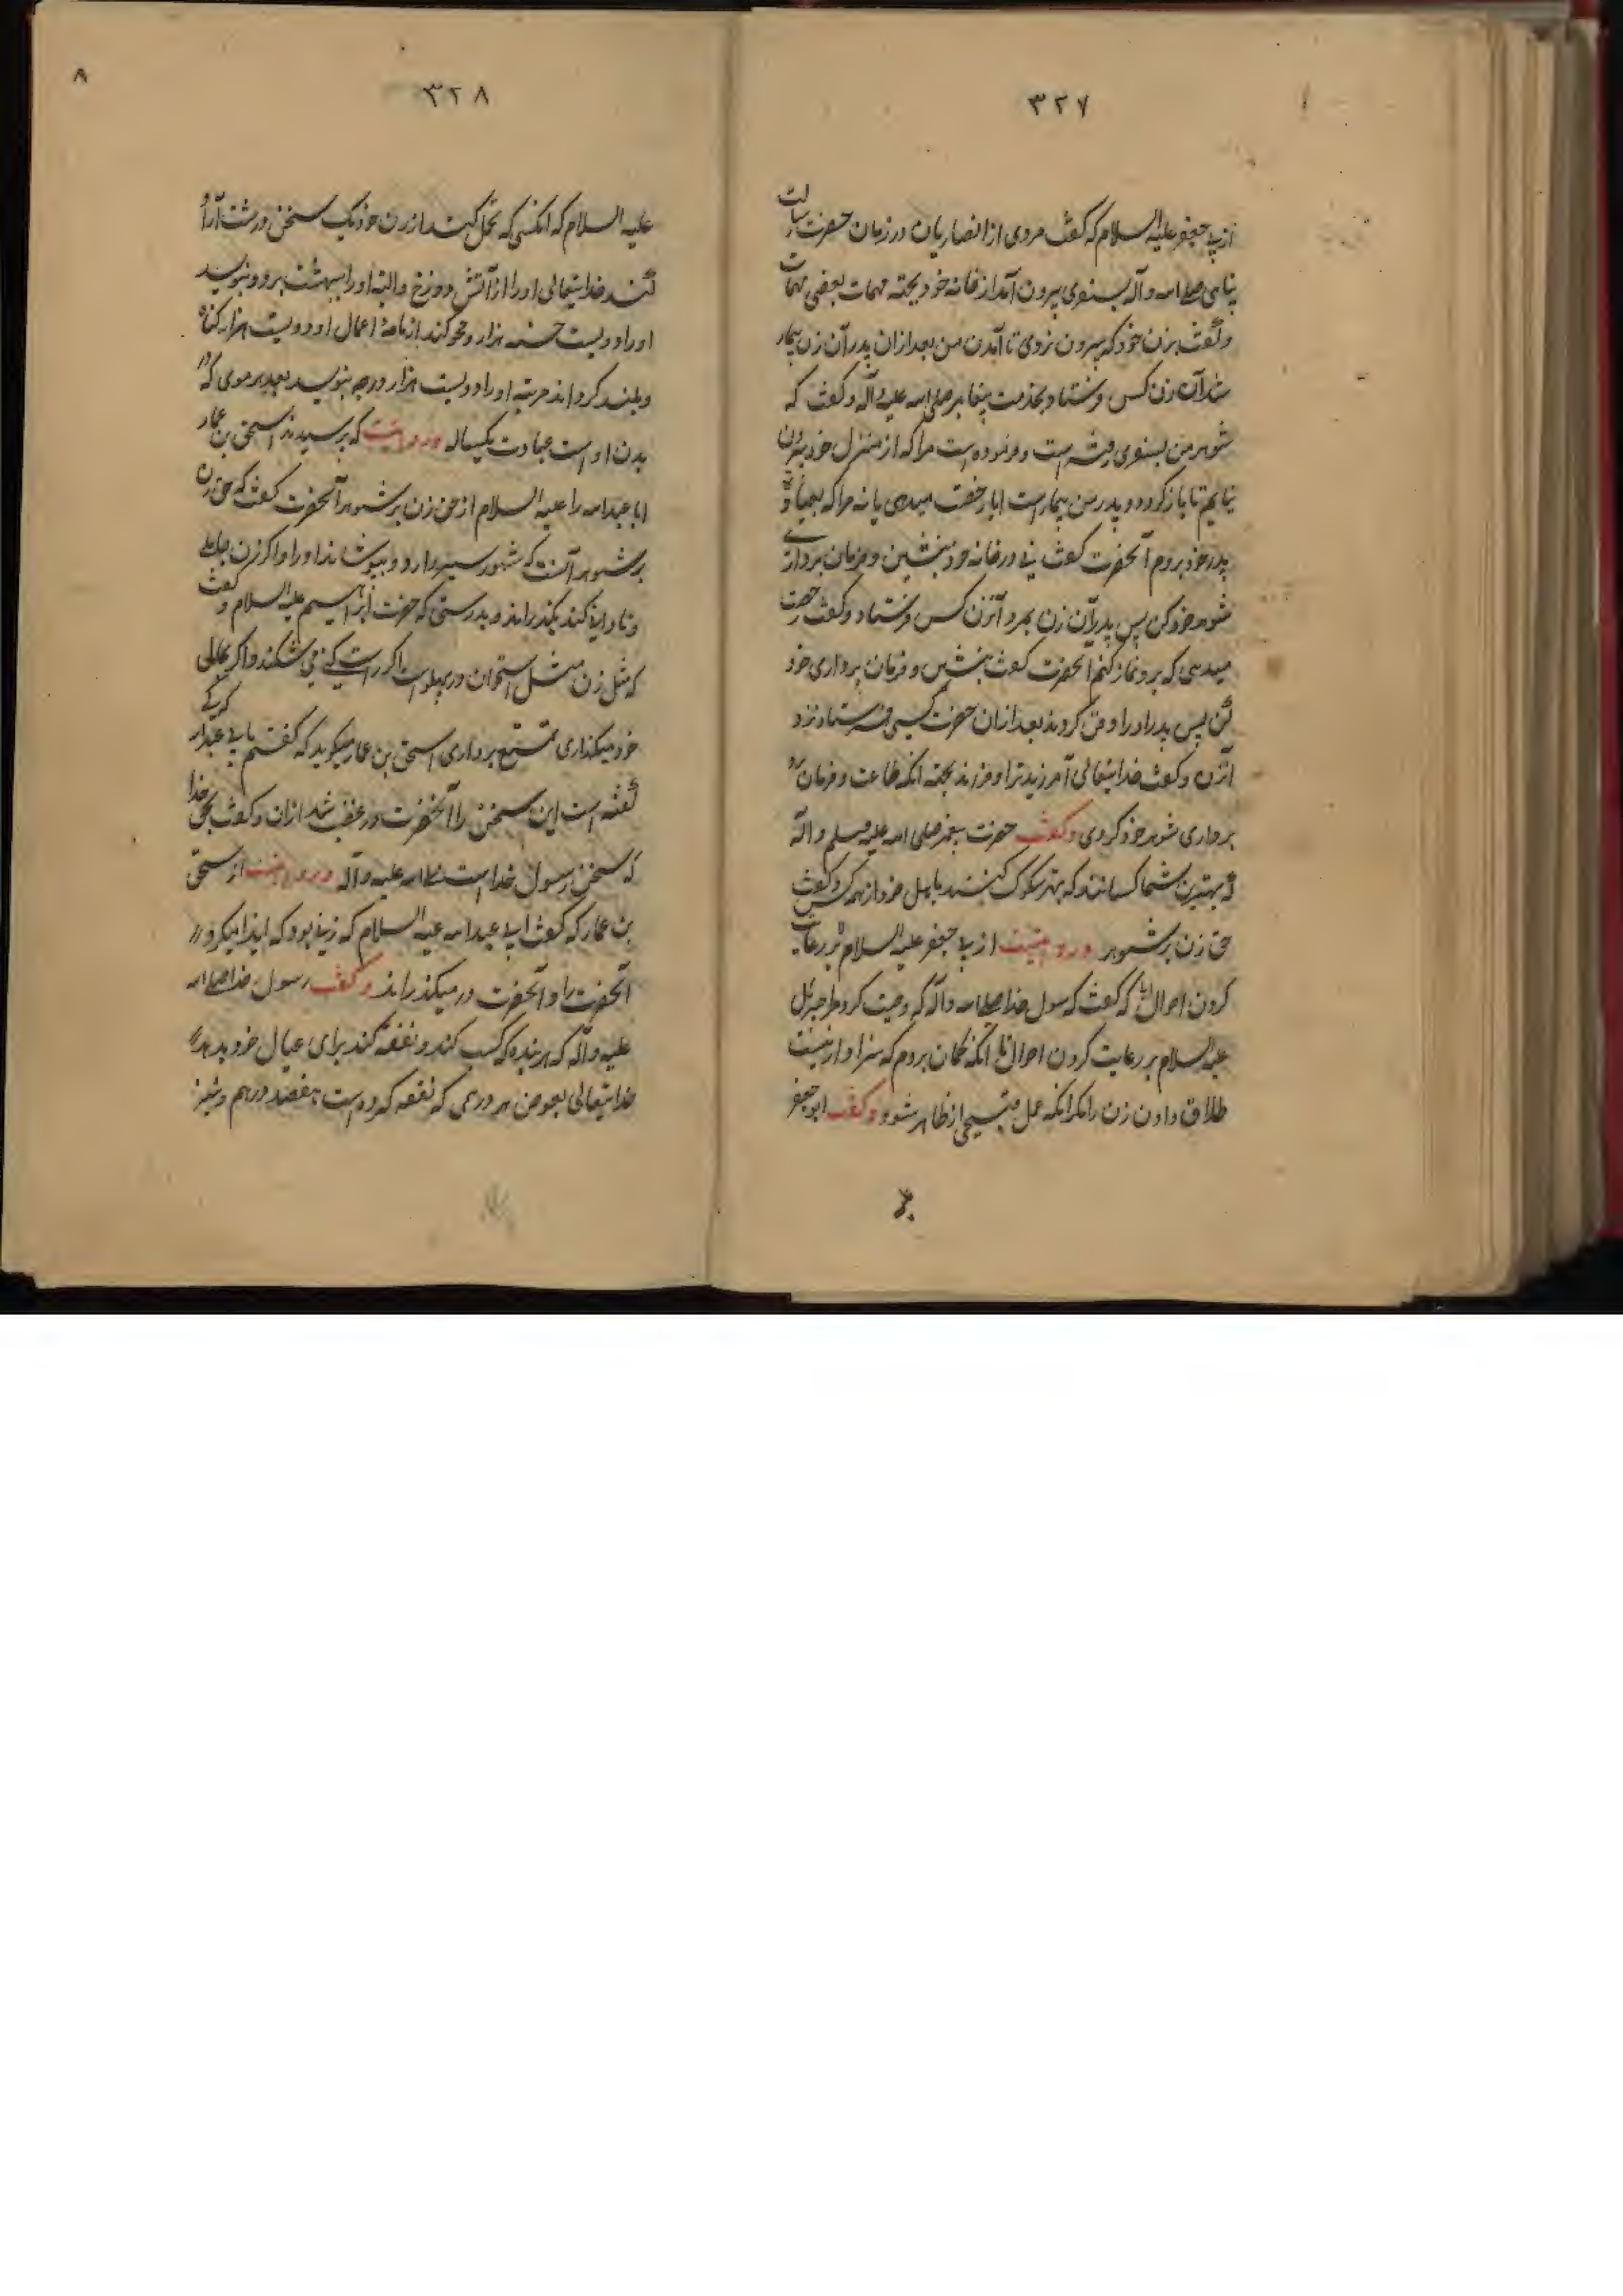 ۳۲۷
از ابی جعفر علیه السلام که گفت مردی از انصاریان در زمان حضرت رسالت
پناهی صلی الله و آله بسفری بیرون آمد از خانه خود بجهة مهمات بعضی مهمات
و گفت بزن خود که بیرون نروی تا آمدن من بعد از ان پدر آن زن بیمار
شد آن زن کس فرستاد بخدمت پیغامبر صلی الله علیه و آله و گفت که
شوهر من بسفری رفته است و فرموده است مرا که از منزل خود بیرون
نیایم تا باز گردد و پدر من بیمار است ایا رخصت میدهی یا نه مرا که بعیادت
پدر خود بروم آنحضرت گفت نی در خانه خود بنشین و فرمان برداری
شوهر خود کن پس پدر آن زن بمرد آنزن کس فرستاد و گفت رخصت
میدهی که برو نماز کنم آنحضرت گفت بنشین و فرمان برداری خود
کن پس پدر او را دفن کردند بعد از ان حضرت کسی فرستاد نزد
آنزن و گفت خدایتعالی آمرزید ترا و فرزند بجهة آنکه طاعت و فرمان
برداری شوهر خود کردی و گفت حضرت پیغمبر صلی الله علیه وسلم و آله
که بهترین شما کسانند که بهتر سلوک کنند با اهل خود از همه کس و گفت
حق زن بر شوهر و روایتست از ابی جعفر علیه السلام بر رعایت
کردن احوال زن که گفت که رسول خدا صلی الله و آله که وصیت کرد مرا جبرئیل
علیه السلام بر رعایت کردن احوال زن تا آنکه گمان بردم که سزاوار نیست
طلاق دادن زن را مگر آنکه عمل قبیحی از ظاهر شود و گفت ابو جعفر
۳۲۸
۸
علیه السلام که انکسی که تحمل کند از زن خود یک سخن درشت آزاد
کند خدایتعالی او را از آتش دوزخ و البته او را ببهشت برد و بنویسد
او را دویست حسنه هزار و محو کند از نامهٔ اعمال او دویست هزار گناه
و بلند گرداند مرتبه او را دویست هزار درجه بنویسد بعدد هر موی که در
بدن او است عبادت یکساله و روایتست که پرسیدند اسحق بن عمار
ابا عبدالله را علیه السلام از حق زن بر شوهر آنحضرت گفت که حق زن
بر شوهر آنست که شوهر سیر دارد و بپوشاند او را و اگر زن جاهلی
و نادانی کند بگذراند و بدرستی که حضرت ابراهیم علیه السلام و گفت
که مثل زن مثل استخوان در پهلو است اگر راست کنی می شکند و اگر بحالی
خود میگذاری تمتع برداری اسحق بن عمار میگوید که گفتم بابی عبدالله که کی
گفته است این سخن را آنحضرت در غضب شد از ان و گفت بحق خدا
که سخن رسول خدا است صلی الله علیه و آله و روایتست از اسحق
بن عمار که گفت ابی عبدالله علیه السلام که زنی بود که ایذا میکرد
آنحضرت را و آنحضرت در میگذراند و گفت رسول خدا صلی الله
علیه و آله که هر بنده که کسب کند و نفقه کند برای عیال خود بدهد
خدایتعالی بعوض هر درمی که نفقه کرده است هفصد درهم و نیز